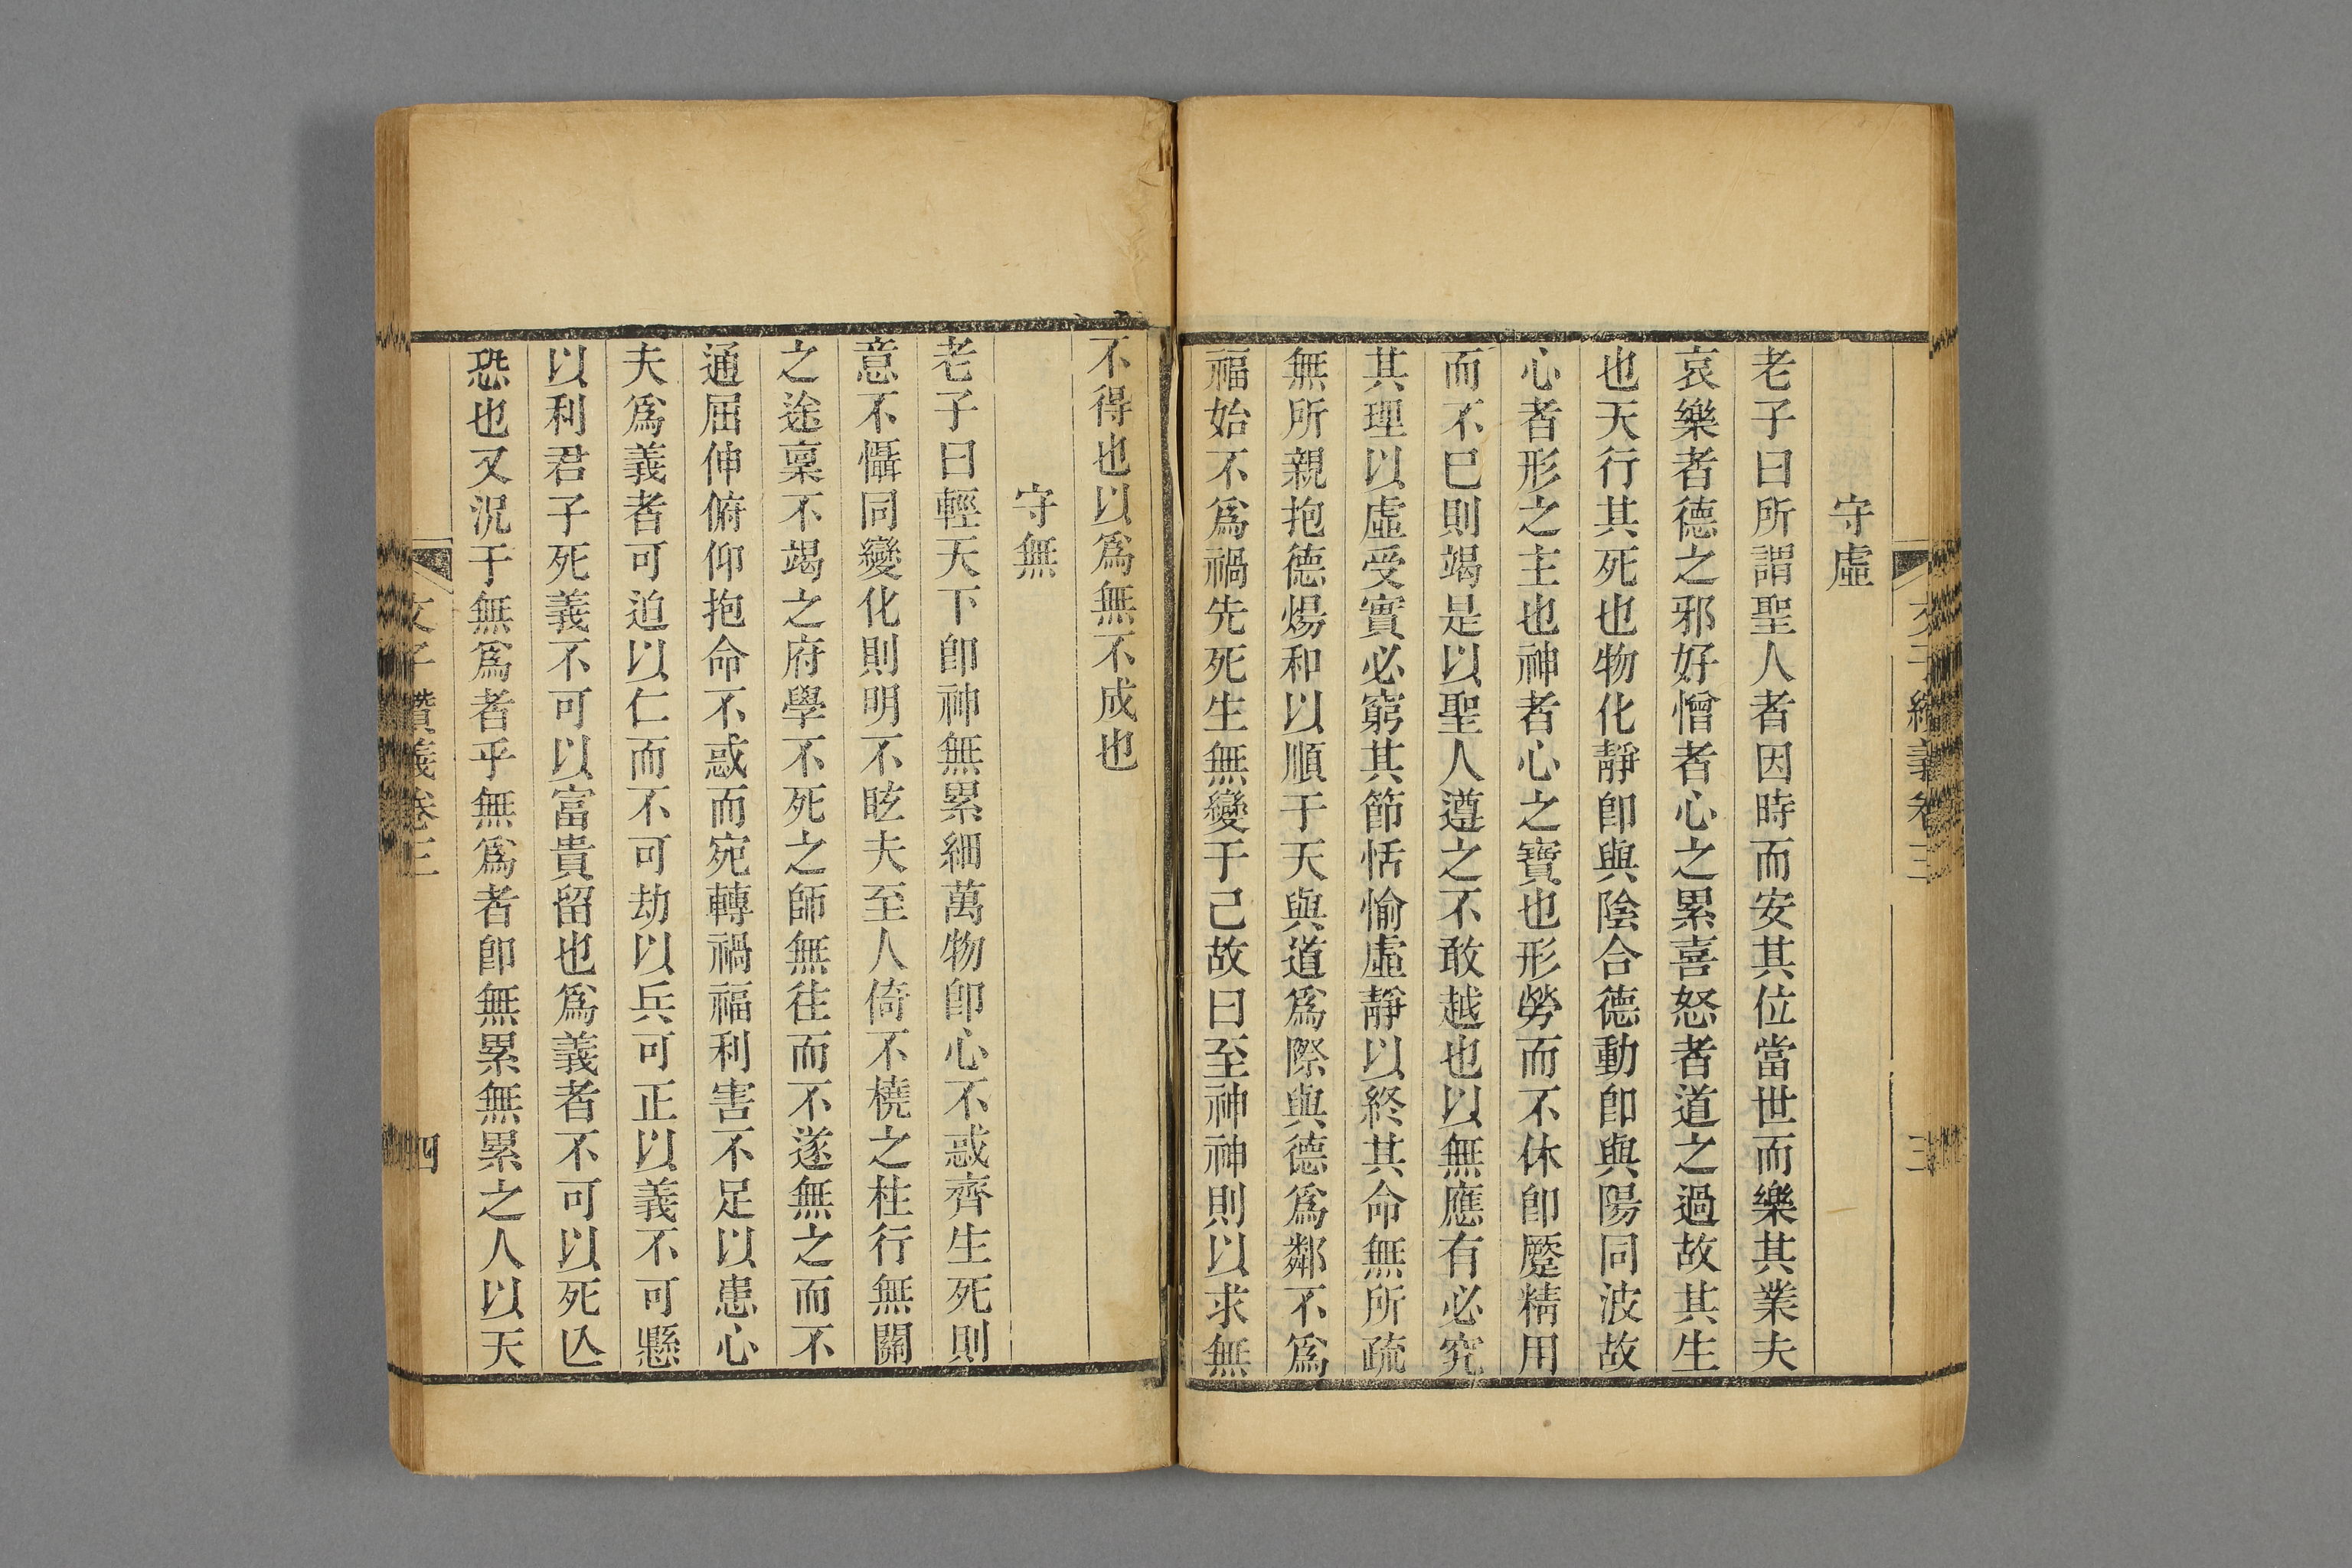 文子纘義卷三
三
守虛
老子曰所謂聖人者因時而安其位當世而樂其業夫
哀樂者德之邪好憎者心之累喜怒者道之過故其生
也天行其死也物化靜卽與陰合德動卽與陽同波故
心者形之主也神者心之寶也形勞而不休卽蹷精用
而不巳則竭是以聖人遵之不敢越也以無應有必究
其理以虛受實必窮其節恬愉虛靜以終其命無所疏
無所親抱德煬和以順于天與道爲際與德爲鄰不爲
福始不爲禍先死生無變于己故曰至神神則以求無
不得也以爲無不成也
守無
老子曰輕天下卽神無累細萬物卽心不惑齊生死則
意不懾同變化則明不眩夫至人倚不橈之柱行無關
之途稟不竭之府學不死之師無徃而不遂無之而不
通屈伸俯仰抱命不惑而宛轉禍福利害不足以患心
夫爲義者可迫以仁而不可劫以兵可正以義不可懸
以利君子死義不可以富貴留也爲義者不可以死亾
恐也又況于無爲者乎無爲者卽無累無累之人以天
文子纘義卷三
四